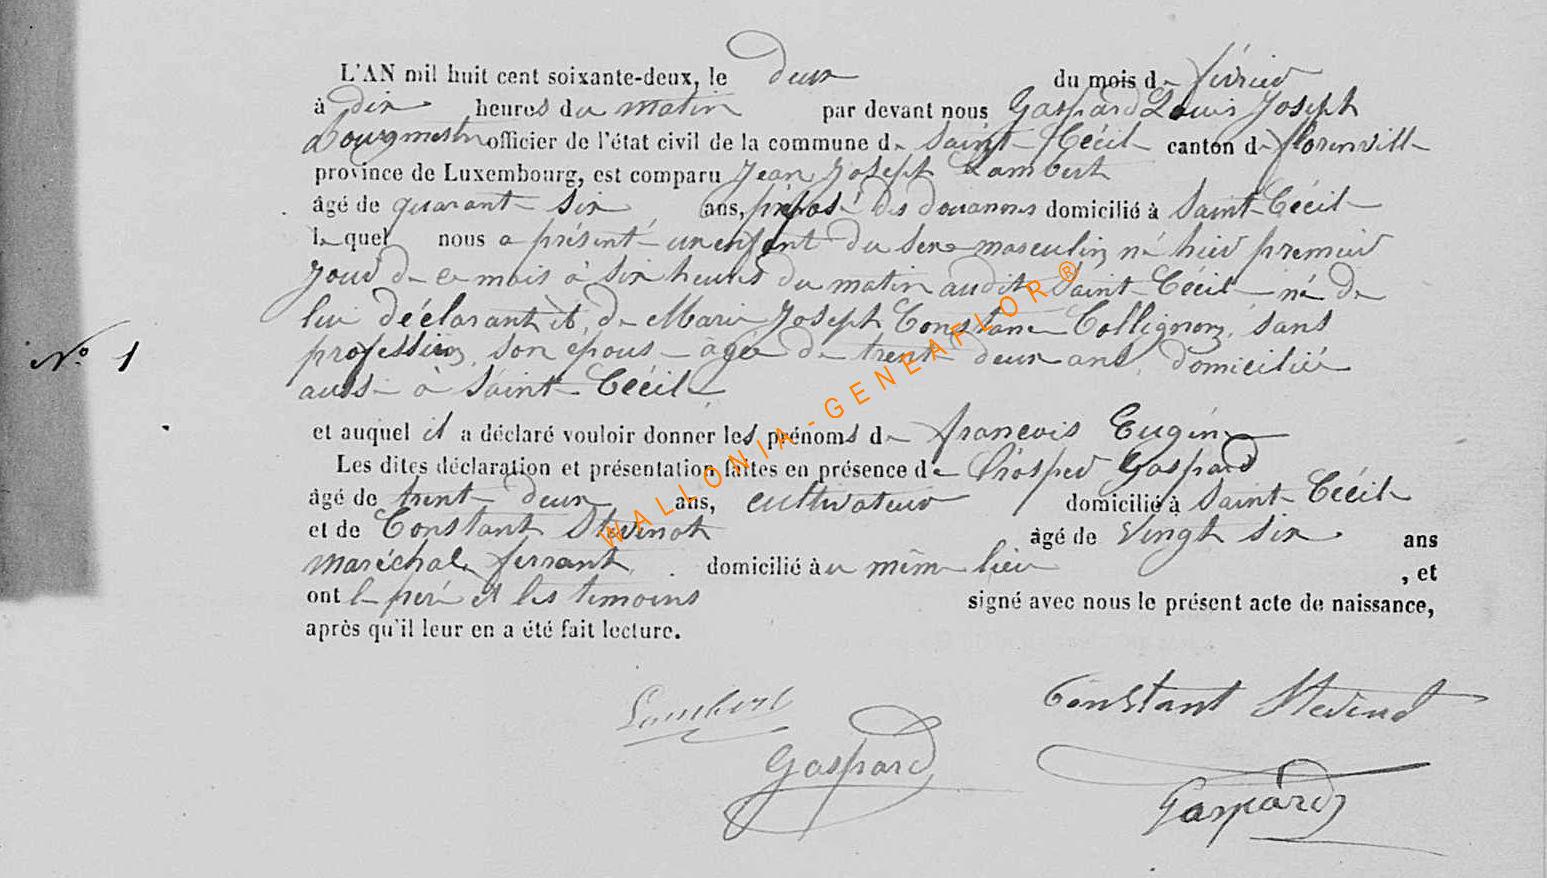 L'AN mil huit cent soixante-deux, le deux du mois de février
à dix heures du matin par devant nous Gaspard Louis Joseph
Bourgmestre officier de l'état civil de la commune de Saint Cécile canton de florenville
province de Luxembourg, est comparu Jean Joseph Lambert
âgé de quarante six ans, préposé des douannes domicilié à Saint Cécile
lequel nous a présenté un enfant du sexe masculin né hier premier
jour de ce mois à six heures du matin audit Saint Cécile né de
lui déclarant et de Marie Joseph Constance Collignon, sans
profession, son épouse âgée de trente deux ans, domiciliée
N° 1
aussi à Saint Cécile
et auquel il a déclaré vouloir donner les prénoms de françois Eugène
Les dites déclaration et présentation faites en présence de Prosper Gaspard
âgé de trente deux ans, cultivateur domicilié à Saint Cécile
et de Constant Stevenot âgé de Vingt six ans
maréchal ferrant domicilié au même lieu , et
ont le père et les témoins signé avec nous le présent acte de naissance,
après qu'il leur en a été fait lecture.
Lambert Constant Stevenot
Gaspard
Gaspard
WALLONIA-GENEAFLOR®